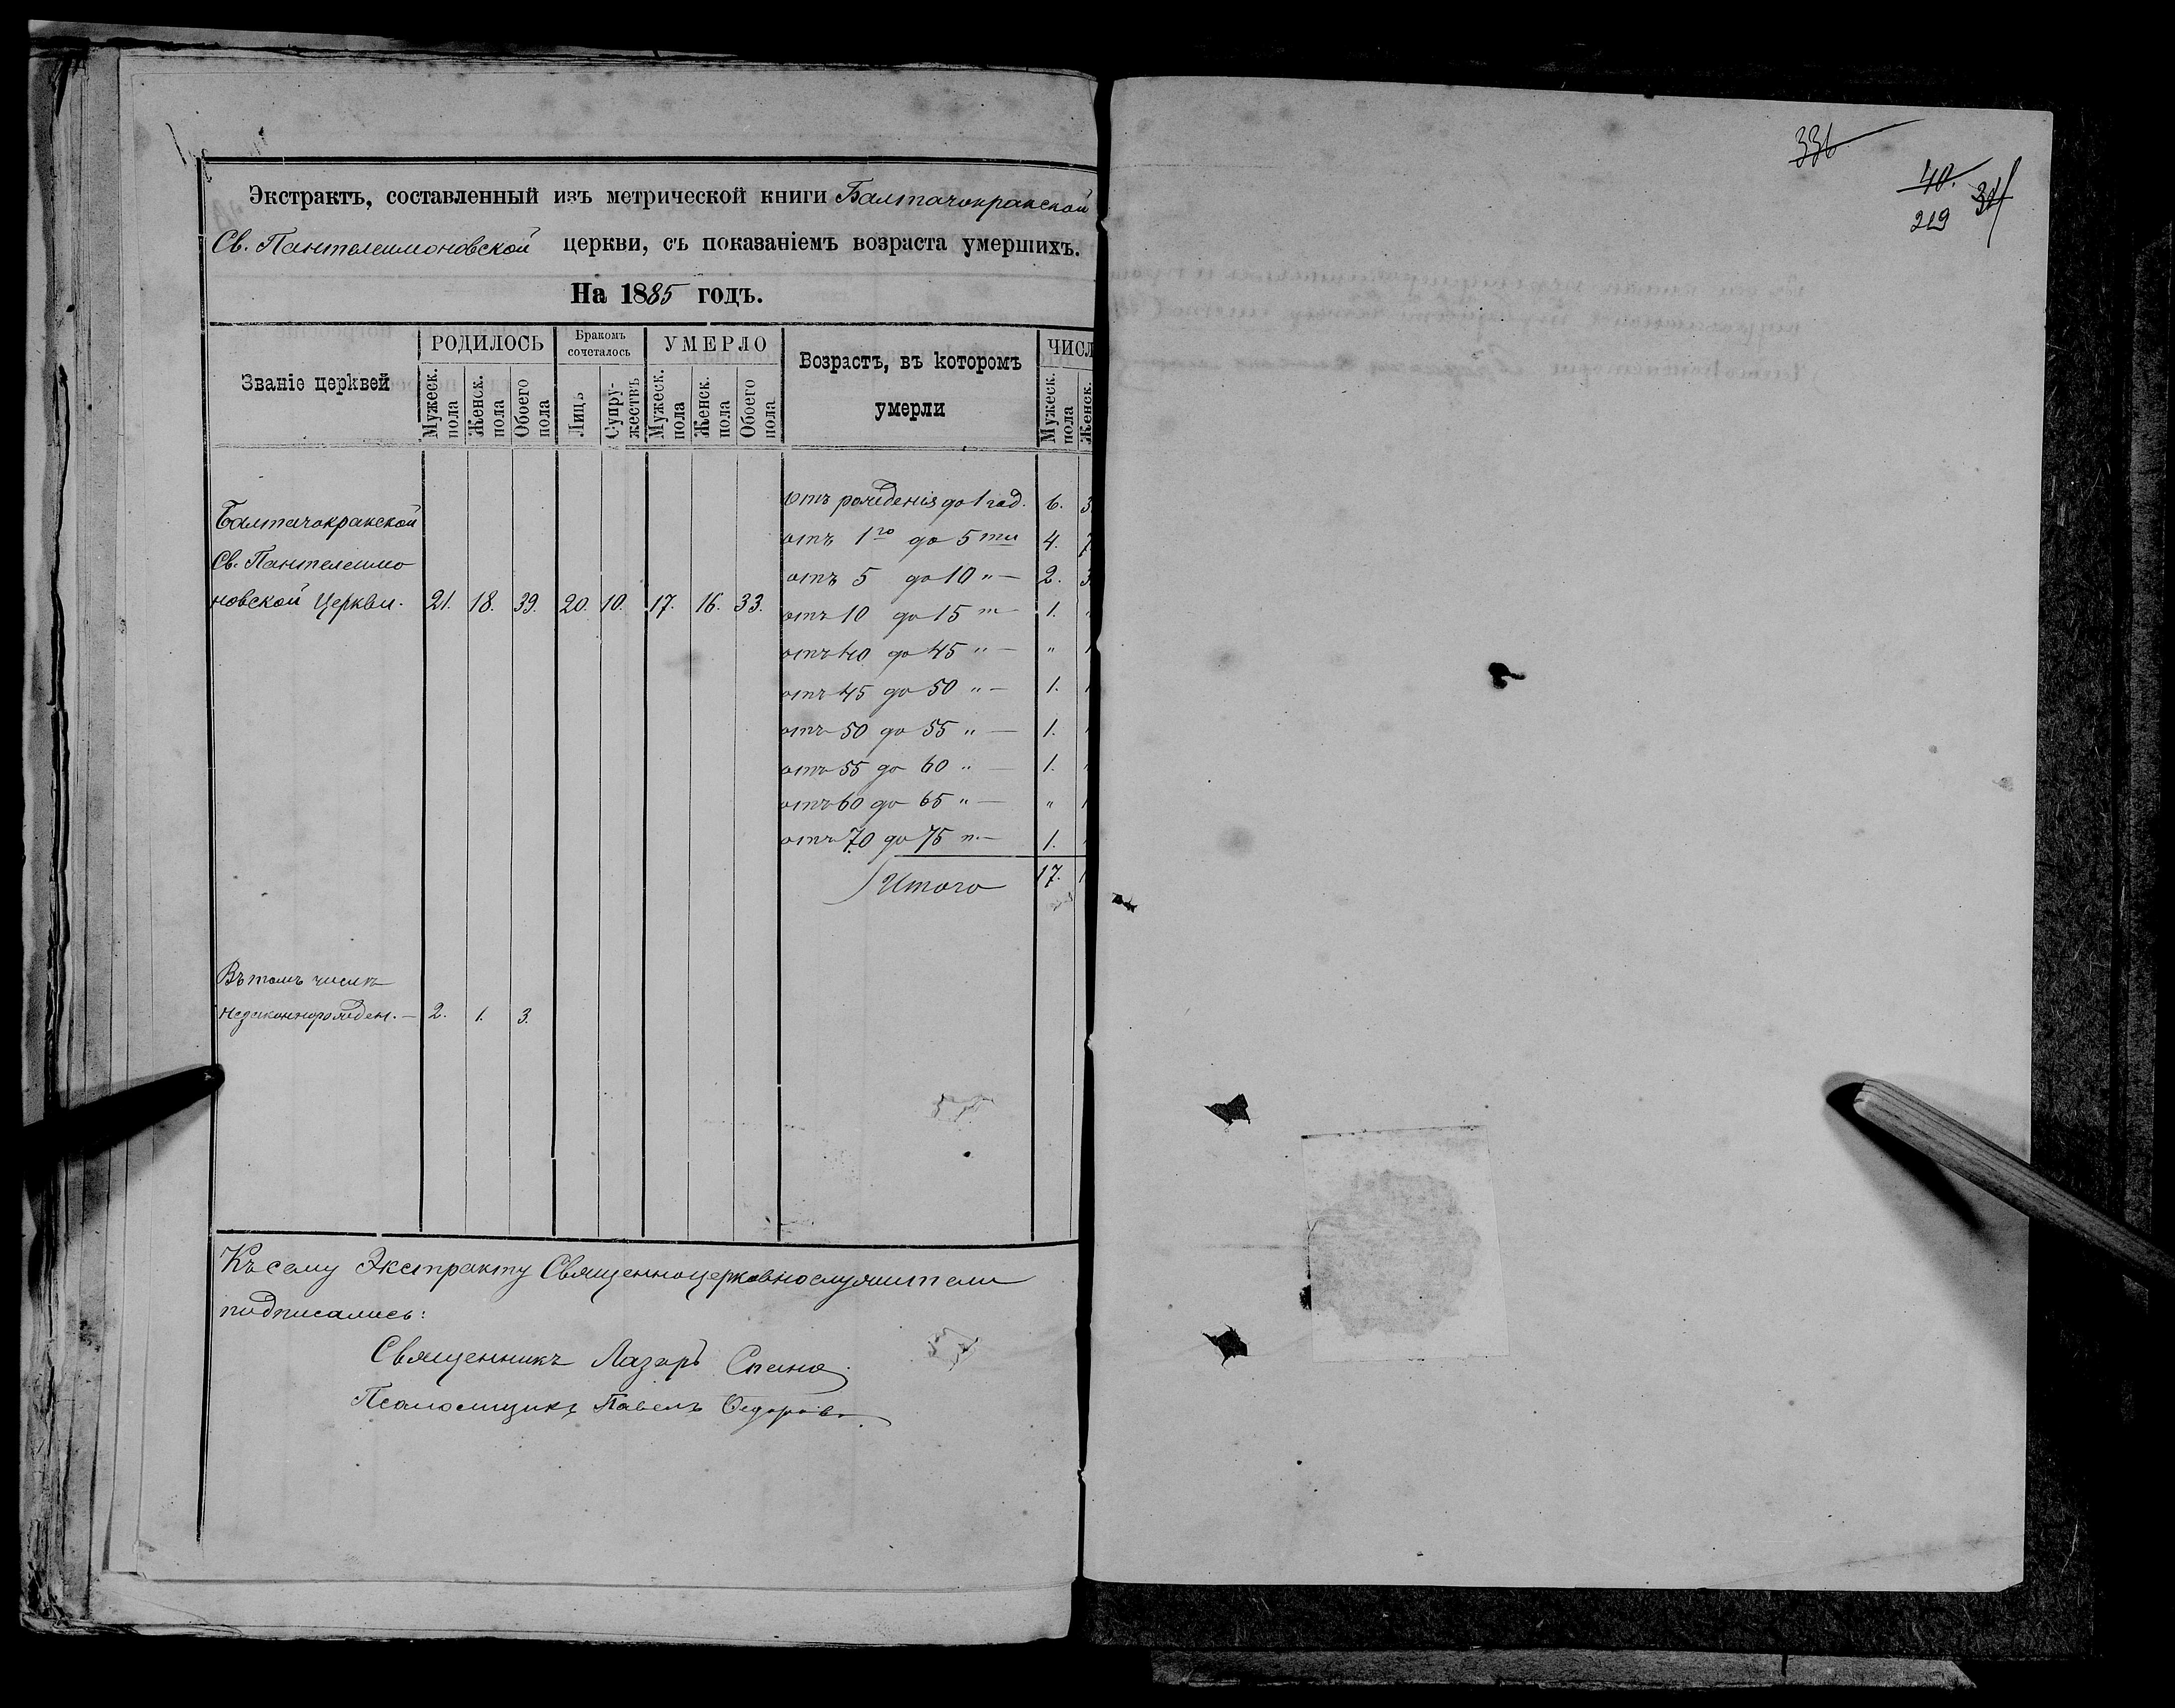 Экстрактъ, составленный изъ метрической книги Балтачокракской
Св. Пантелеимоновской церкви, съ показаніемъ возраста умершихъ.
На 1885 годъ.
Званіе церквей
РОДИЛОСЬ
Мужеск. пола
Женск. пола
Обоего пола
Бракомъ сочеталось
Лицъ
Супру-жествъ
УМЕРЛО
Мужеск. пола
Женск. пола
Обоего пола
Возрастъ, въ которомъ
умерли
ЧИСЛ
Мужеск. пола
Женск.
Балтачокракской
Св. Пантелеимо
новской Церкви. 21. 18. 39. 20. 10. 17. 16. 33.
Отъ рожденія до 1 год. 6. 3.
отъ 1го до 5 ти 4. 7
отъ 5 до 10 " — 2. 3.
отъ 10 до 15 " — 1. "
отъ 40 до 45 " — " 1
отъ 45 до 50 " — 1. 1
отъ 50 до 55 " — 1.
отъ 55 до 60 " — 1. "
отъ 60 до 65 " — " 1
отъ 70 до 75 " — 1.
Итого 17. 1
Въ томъ числѣ
незаконнорожден. — 2. 1. 3.
Къ сему Экстракту Священноцерковнослужители
подписались:
Священникъ Лазарь Спано
Псаломщикъ Павелъ Федоровъ
336
40.
219